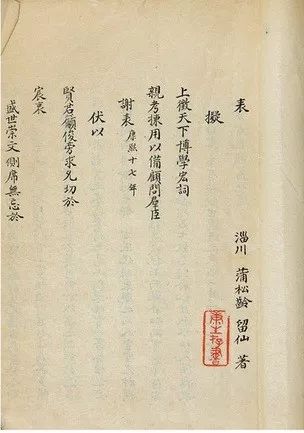 表
淄川 蒲松齡 留仙 著
擬
上徵天下博學宏詞
親考擢用以備顧問羣臣
謝表 康熙十七年
伏以
賢君籲俊旁求允切於
宸衷
盛世崇文側席無忘於